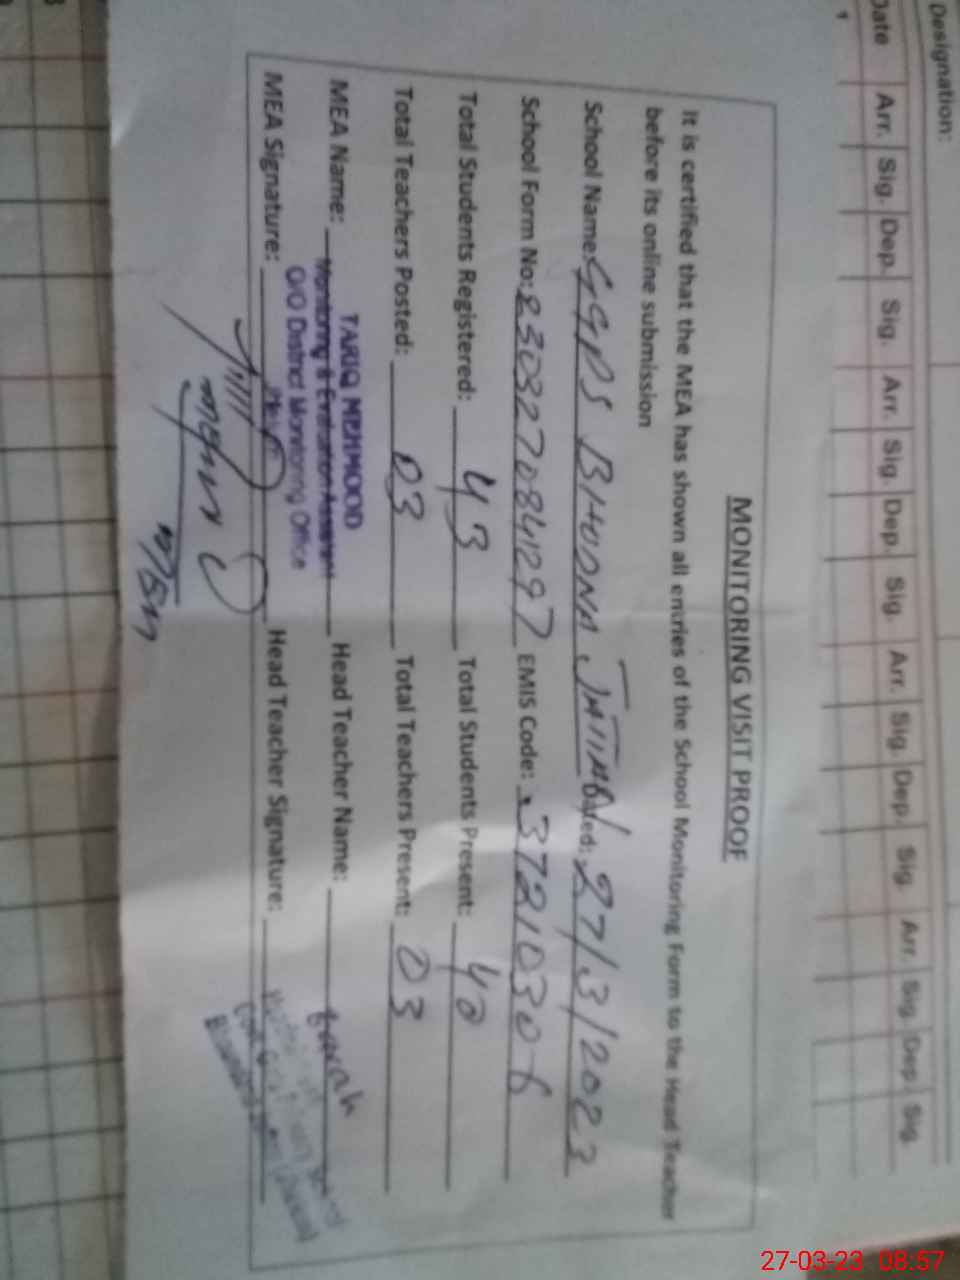 Designation:
Date Arr. Sig. Dep. Sig. Arr. Sig. Dep. Sig. Arr. Sig. Dep. Sig. Arr. Sig. Dep. Sig.
1
MONITORING VISIT PROOF
It is certified that the MEA has shown all entries of the School Monitoring Form to the Head Teacher
before its online submission
School Name: GGPS BHONA Dated: 27/3/2023
School Form No: EMIS Code: 37210306
Total Students Registered: 43 Total Students Present: 40
Total Teachers Posted: 03 Total Teachers Present: 03
MEA Name: TARIQ MEHMOOD Head Teacher Name: farah
Monitoring & Evaluation Assistant
O/O District Monitoring Office
MEA Signature: Head Teacher Signature:
27-03-23 08:57